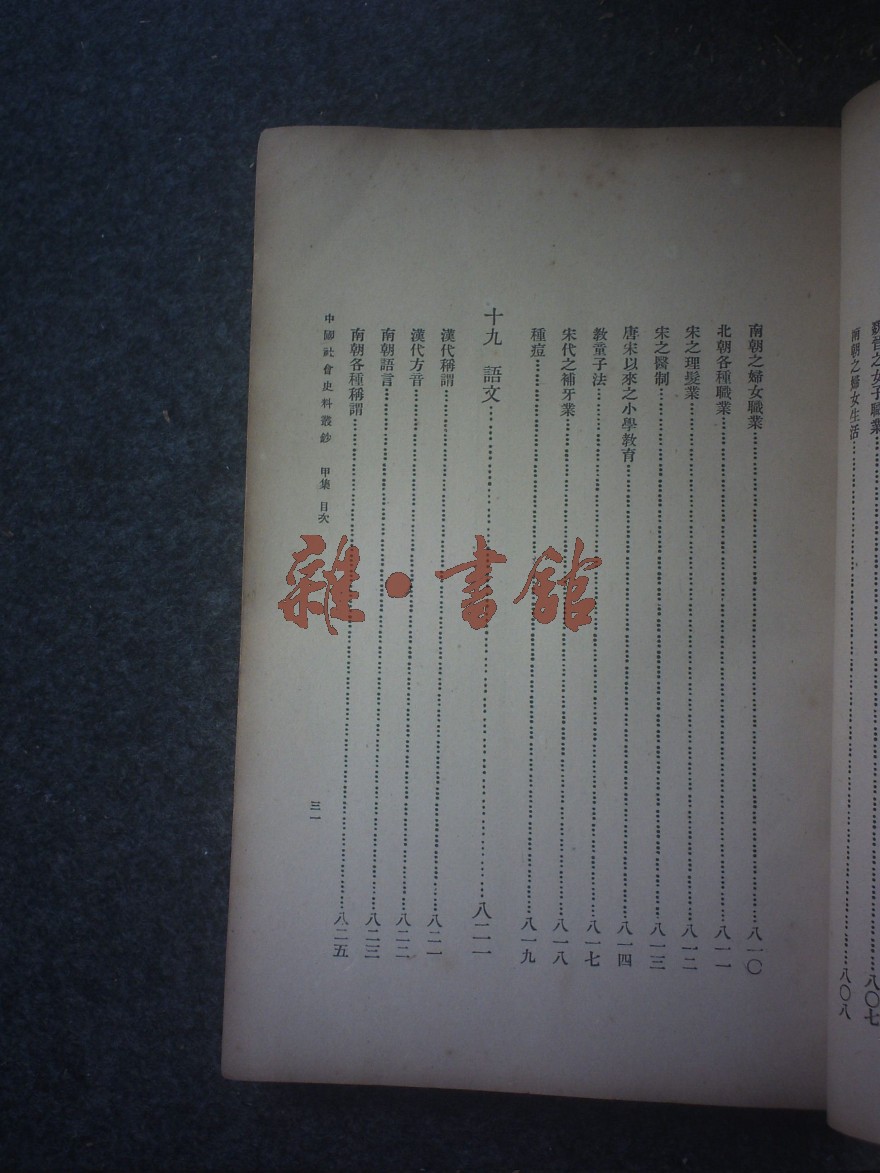 魏晉之女子職業……八〇七
兩朝之婦女生活……八〇八
南朝之婦女職業……八一〇
北朝各種職業……八一一
宋之理髮業……八一二
宋之醫制……八一三
唐宋以來之小學教育……八一四
教童子法……八一七
宋代之補牙業……八一八
種痘……八一九
十九 語文……八二一
漢代稱謂……八二一
漢代方音……八二二
南朝語言……八二三
南朝各種稱謂……八二五
中國社會史料叢鈔 甲集 目次
三一
雜·書館